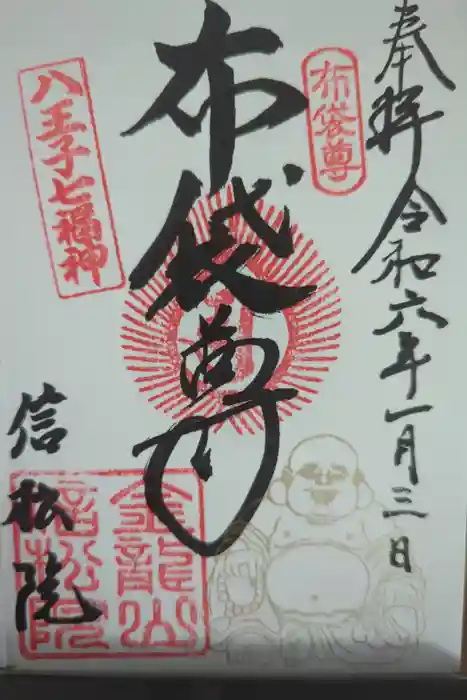 奉拝
令和六年一月三日
布袋尊
布袋尊
八王子七福神
信松院
金龍山
信松院